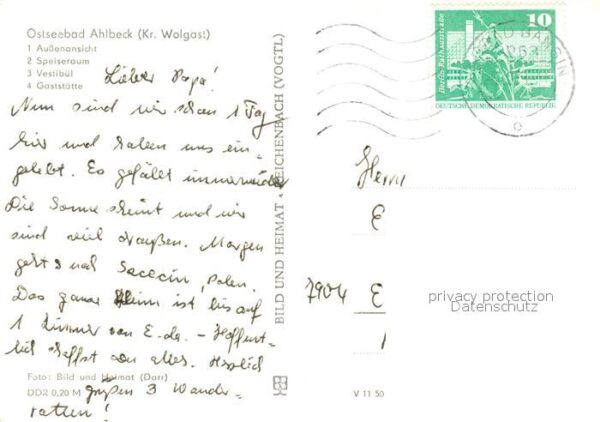 Ostseebad Ahlbeck (Kr. Wolgast)
1 Außenansicht
2 Speiseraum
3 Vestibül
4 Gaststätte
Lieber Papa!
Nun sind wir schon 1 Tag
hier und haben uns ein-
gelebt. Es gefällt immer wieder
Die Sonne scheint und wir
sind viel draußen. Morgen
geht's nach Szczecin, Polen.
Das ganze Heim ist bis auf
1 Zimmer von E. da. – Hoffent-
lich schaffst du alles. Herzlich
Foto: Bild und Heimat (Darr)
grüßen 3 Wander-
DDR 0,20 M
ratten!
BILD UND HEIMAT REICHENBACH (VOGTL)
V 11 50
10
Berlin, Rathausstraße
DEUTSCHE DEMOKRATISCHE REPUBLIK
BAD BANSIN
e
Herrn
E
7904 E
privacy protection
Datenschutz